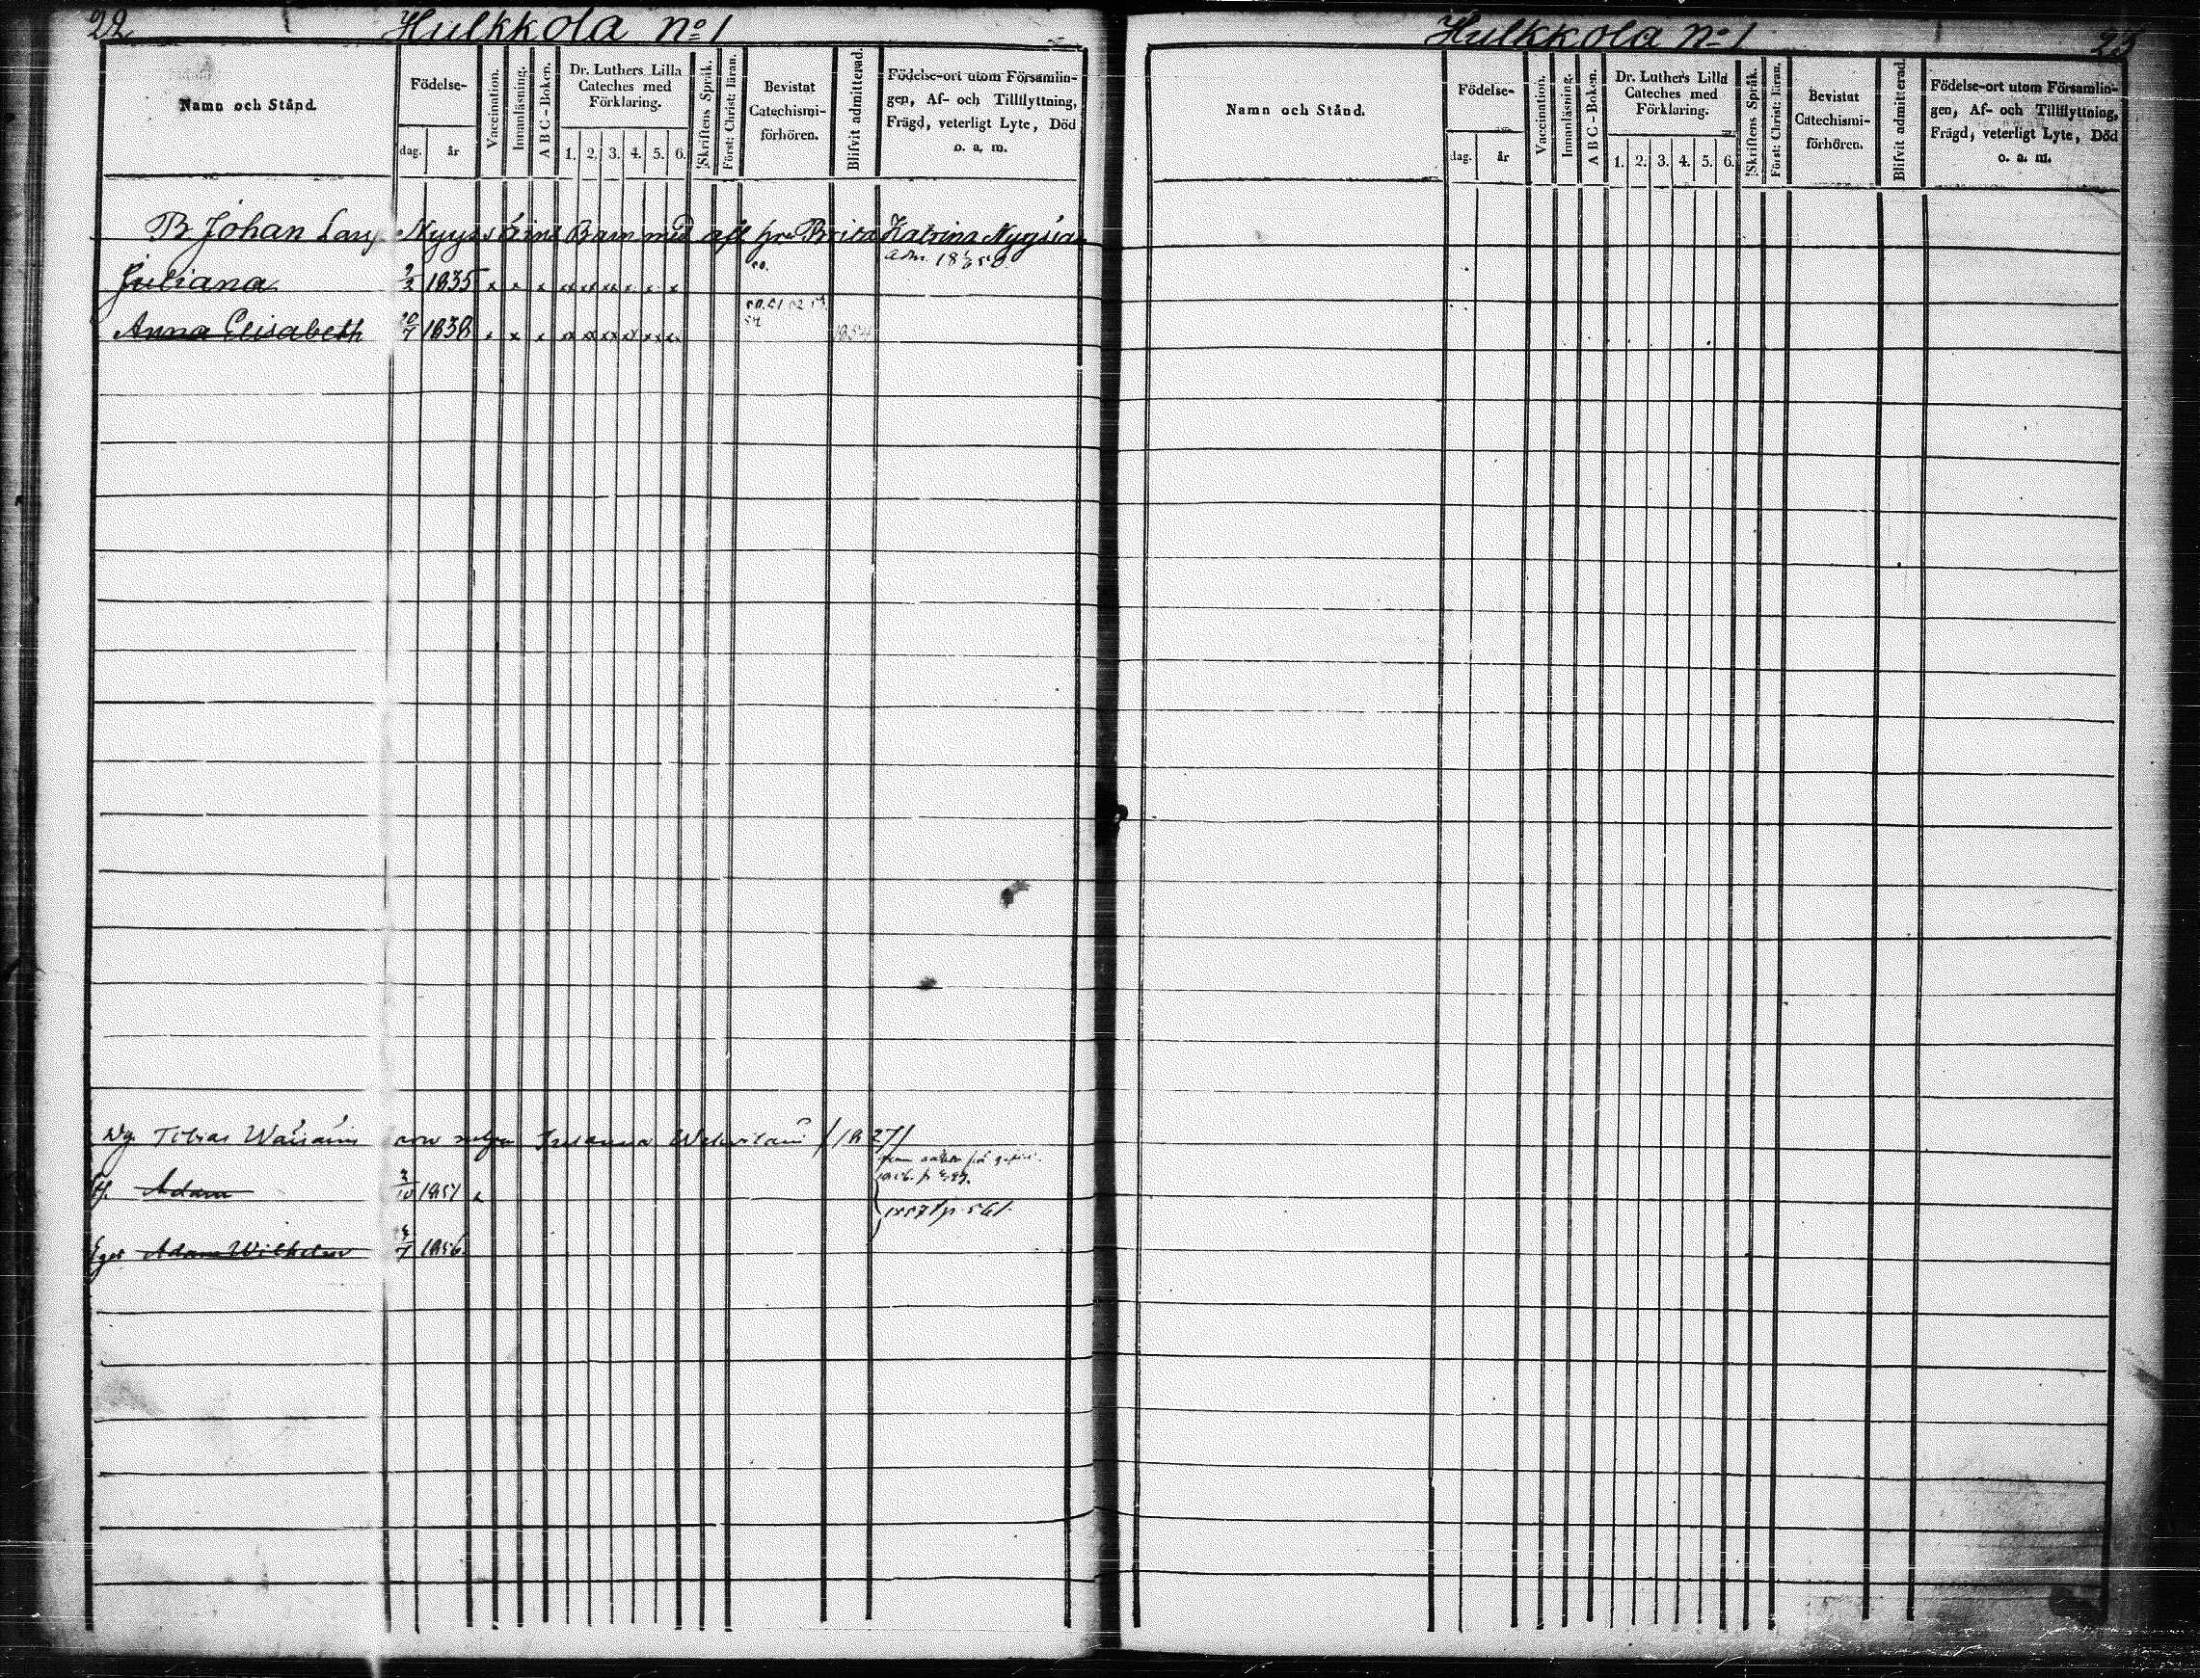 22 Hulkkola No 1
Namn och Stånd.
Födelse-
dag. år
Vaccination.
Innanläsning.
A B C - Boken.
Dr. Luthers Lilla Cateches med Förklaring.
1. 2. 3. 4. 5. 6.
Skriftens Språk.
Först: Christ: läran.
Bevistat Catechismi-förhören.
Blifvit admitterad.
Födelse-ort utom Församlin-
gen, Af- och Tillflyttning,
Frägd, veterligt Lyte, Död
o. a. m.
B Johan Nyyssöins Barn med afl hu Brita Katrina
Juliana 2/2 1835 x x x xx xx xx x x x 50.
Anna Elisabeth 20/7 1838 x x x x xx xx 50. 51 52 54 1854
Tobias Susanna /1827/
Adam 3/10 1851 x
1857 p. 561.
Adam Wilhelm 7 1856.
Hulkkola No 1 23
Namn och Stånd.
Födelse-
dag. år
Vaccination.
Innanläsning.
A B C - Boken.
Dr. Luthers Lilla Cateches med Förklaring.
1. 2. 3. 4. 5. 6.
Skriftens Språk.
Först: Christ: läran.
Bevistat Catechismi-förhören.
Blifvit admitterad.
Födelse-ort utom Församlin-
gen, Af- och Tillflyttning,
Frägd, veterligt Lyte, Död
o. a. m.